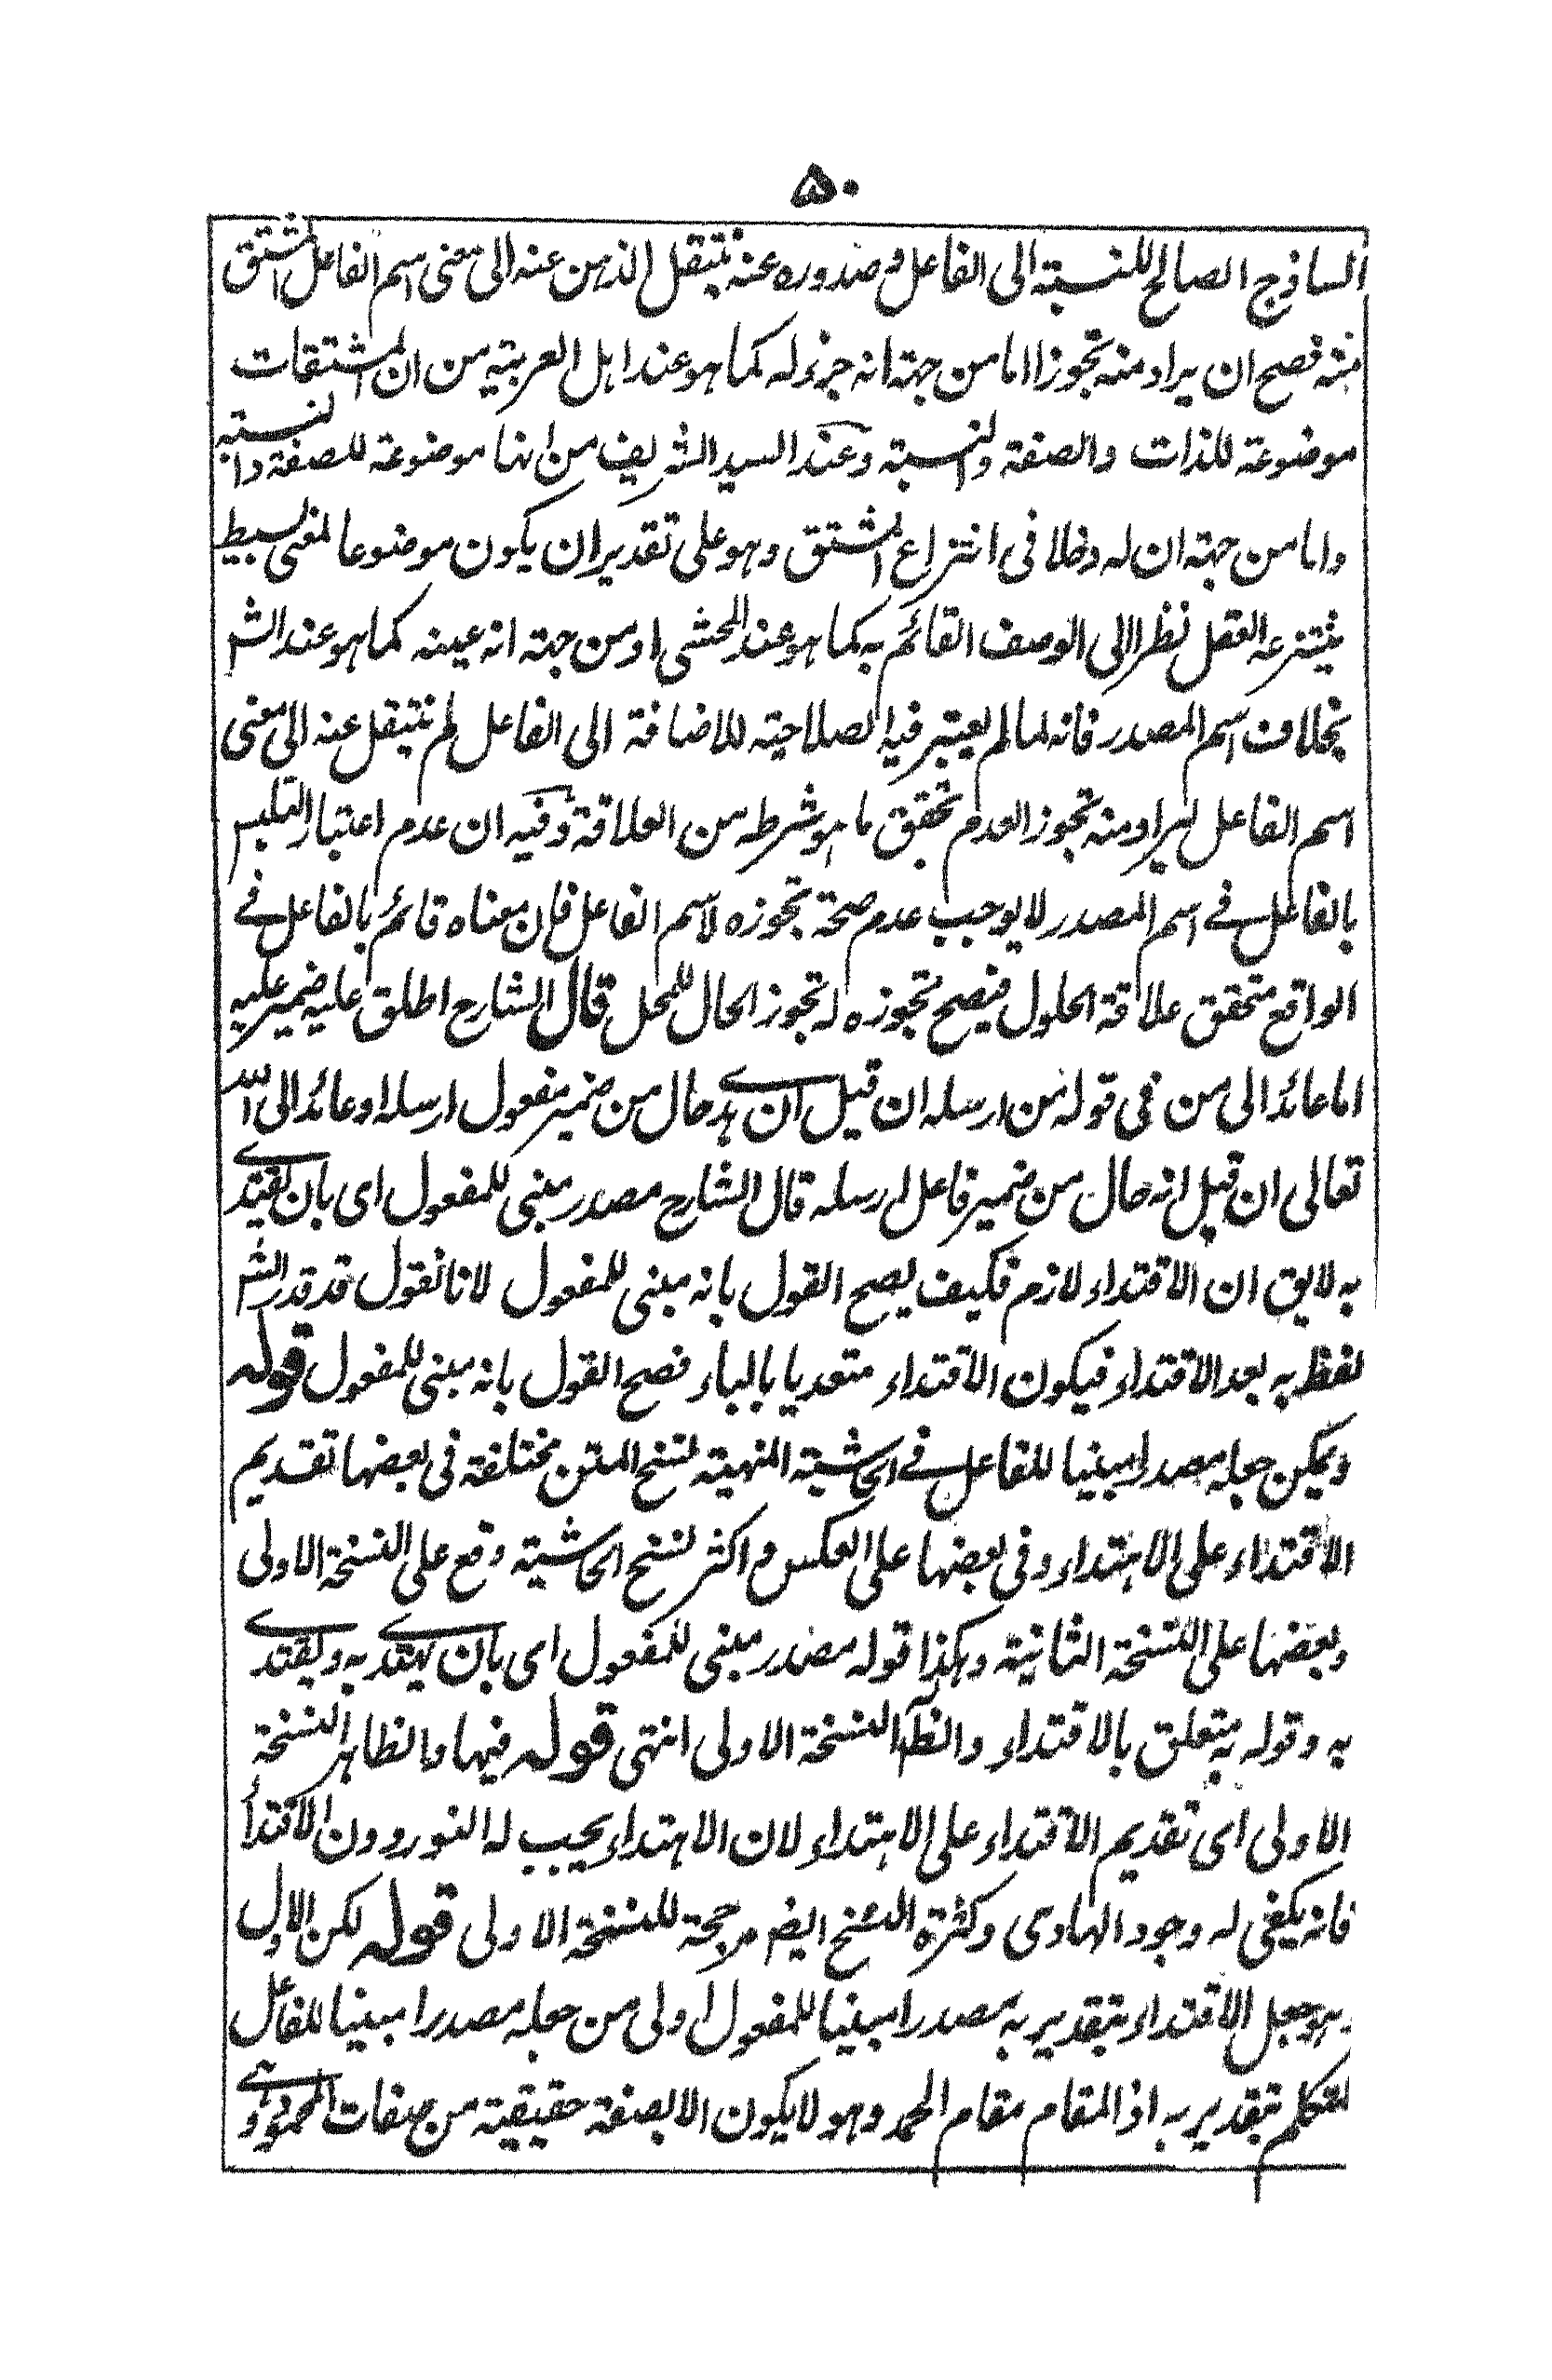 ۵۰
الساذج الصالح للنسبته الى الفاعل و صدوره عنه ينتقل الذهن عنه الى معنى اسم الفاعل المشتق
منه فصح ان يراد منه تجوزا اما من جهته انه جزء له كما هو عند اهل العربيته من ان المشتقات
موضوعة للذات والصفة والنسبته وعند السيد الشريف من انها موضوعة للصفة والنسبته
واما من جهته ان له دخلا فى انتزاع المشتق وهو على تقدير ان يكون موضوعا لمعنى بسيط
ينتزعه العقل نظرا الى الوصف القائم به كما هو عند المحشى او من جهته انه عينه كما هو عند الش
بخلاف اسم المصدر فانه لما لم يعتبر فيه الصلاحيته للاضافة الى الفاعل لم ينتقل عنه الى معنى
اسم الفاعل ليراد منه تجوز العدم تحقق ما هو شرطه من العلاقة وفيه ان عدم اعتبار التلبس
بالفاعل فے اسم المصدر لا يوجب عدم صحة تجوزه لاسم الفاعل فان معناه قائم بالفاعل فے
الواقع متحقق علاقة الحلول فيصح تجوزه له تجوز الحال للمحل قال الشارح اطلق عليه ضمير عليه
اما عائد الى من فى قوله من ارسله ان قيل ان هدى حال من ضمير مفعول ارسله او عائد الى الله
تعالى ان قيل انه حال من ضمير فاعل ارسله قال الشارح مصدر مبنى للمفعول اى بان يقتدى
به لايق ان الاقتداء لازم فكيف يصح القول بانه مبنى للمفعول لانا نقول قد قدر الش
لفظ به بعد الاقتداء فيكون الاقتداء متعديا بالباء فصح القول بانه مبنى للمفعول قوله
ويمكن جعله مصدرا مبنيا للفاعل فے الحاشيته المنهيته نسخ المتن مختلفة فى بعضها تقديم
الاقتداء على الاهتداء وفى بعضها على العكس و اكثر نسخ الحاشيته وقع على النسخة الاولى
وبعضها على النسخة الثانيته وهكذا قوله مصدر مبنى للمفعول اى بان يهتدى به ويقتدى
به وقوله به يتعلق بالاقتداء والظ النسخة الاولى انتهى قوله فيها والظاهر النسخة
الاولى اى تقديم الاقتداء على الاهتداء لان الاهتداء يجب له النور دون الاقتدا
فانه يكفى له وجود الهادى وكثرة النسخ ايض مرجحة للنسخة الاولى قوله لكن الاول
وهو جعل الاقتداء بتقدير به مصدرا مبنيا للمفعول اولى من جعله مصدرا مبنيا للفاعل
لمتكلم بتقدير به اذ المقام مقام الحمد وهو لا يكون الا بصفة حقيقيته من صفات المحمود